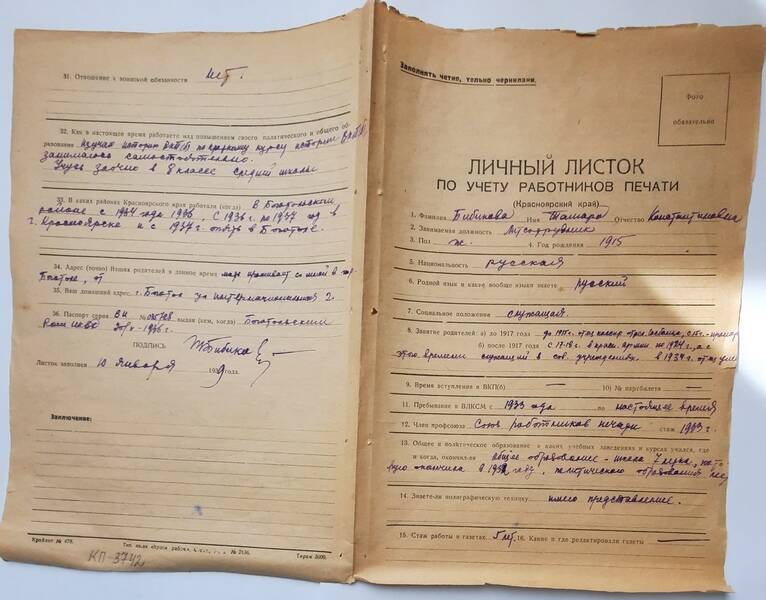 31. Отношение к воинской обязанности нет.
32. Как в настоящее время работаете над повышением своего политического и общего об-
разования изучаю историю ВКП(б) по краткому курсу истории ВКП(б)
занимаюсь самостоятельно.
Учусь заочно в 8 классе средней школы
33. В каких районах Красноярского края работали (когда) в Боготольском
районе с 1934 года 1936, с 1936 г. по 1937 год в
г. Красноярске и с 1937 г. опять в Боготоле.
34. Адрес (точно) Ваших родителей в данное время проживает со мной в гор.
Боготоле,
35. Ваш домашний адрес г. Боготол ул Интернациональная 2.
36. Паспорт серия № выдан (кем, когда) Боготольским
1936 г.
ПОДПИСЬ ТБибика
Листок заполнен 10 Января 1939 года.
Заключение:
Крайлит № 479. Тип. изд-ва № 2136. Тираж 3000.
КП-3742
Заполнять четко, только чернилами.
Фото
обязательно
ЛИЧНЫЙ ЛИСТОК
ПО УЧЕТУ РАБОТНИКОВ ПЕЧАТИ
(Красноярский край)
1. Фамилия Бибикова Имя Тамара Отчество Константиновна
2. Занимаемая должность Литсотрудник
3. Пол ж. 4. Год рождения 1915
5. Национальность русская
6. Родной язык и какие вообще языки знаете русский
7. Социальное положение служащая.
8. Занятие родителей: а) до 1917 года до 1915 г. отец
б) после 1917 года с 17-18 г. в красн. армии по 1924 г., а с
этого времени служащий в сов. учреждениях. в 1934 г. отец умер
9. Время вступления в ВКП(б) — 10) № партбилета —
11. Пребывание в ВЛКСМ с 1933 года по настоящее время
12. Член профсоюза Союз работников печати стаж 1933 г.
13. Общее и политическое образование в каких учебных заведениях и курсах учился, где
и когда, окончили общее образование - школа 7 летка, кото-
рую окончила в году, политического образования нет
14. Знаете-ли полиграфическую технику имею представление.
15. Стаж работы в газетах 5 лет. 16. Какие и где редактировали газеты —